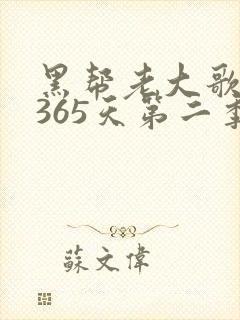 黑帮老大歌
365天第二季
蘇文偉